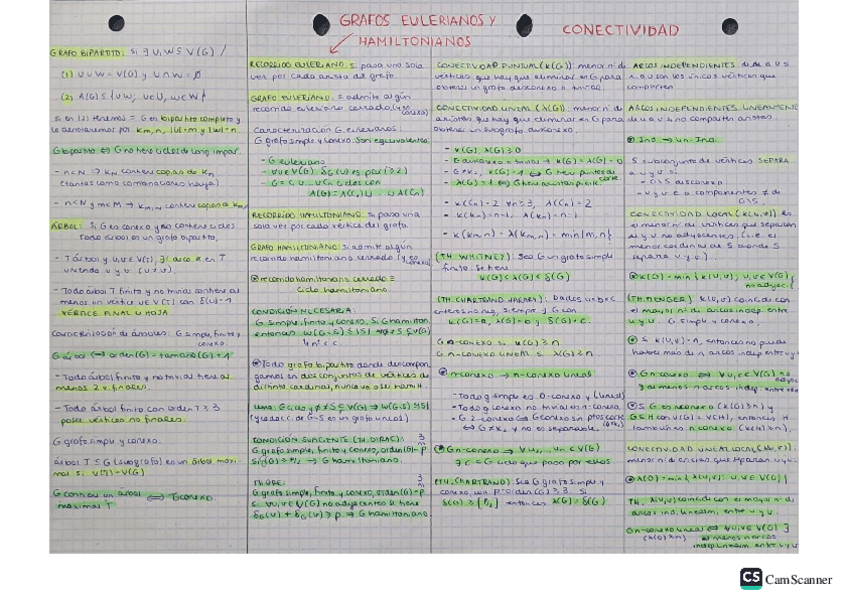 GRAFOS EULERIANOS Y
HAMILTONIANOS
CONECTIVIDAD
GRAFO BIPARTITO: si ∃ U, W ⊆ V(G) /
(1) U ∪ W = V(G) y U ∩ W = ∅
(2) A(G) ⊆ {uw, u∈U, w∈W}
si en (2) tenemos = G es bipartito completo y
lo denotaremos por Km,n, |U|=m y |W|=n.
G bipartito ⟺ G no tiene ciclos de long impar.
- n<N → KN contiene copias de Kn
(tantas como combinaciones haya)
- n<N y m<M → KM,N contiene copias de Km,n
ÁRBOL: si G es conexo y no contiene ciclos
Todo árbol es un grafo bipartito.
- T árbol y u,v ∈ V(T), ∃! arco en T
uniendo u y v (u≠v).
- Todo árbol T finito y no trivial contiene al
menos un vértice u∈V(T) con δ(u)=1
VÉRTICE FINAL U HOJA
Caracterización de árboles: G simple, finito y
conexo.
G árbol ⟺ orden(G) = tamaño(G)+1
- Todo árbol finito y no trivial tiene al
menos 2 v. finales.
- Todo árbol finito con orden T ≥ 3
posee vértices no finales.
G grafo simple y conexo.
árbol T ≤ G (subgrafo) es un árbol maxi-
mal si V(T)=V(G)
G contiene un árbol ⟺ G conexo.
maximal T
RECORRIDO EULERIANO: si pasa una sola
vez por cada arista del grafo.
GRAFO EULERIANO: si admite algún
recorrido euleriano cerrado (y es conexo)
Caracterización G eulerianos:
G grafo simple y conexo. Son equivalentes:
- G euleriano
- ∀u∈V(G) δG(u) es par (≥2)
- G = C1 ∪ ... ∪ Cn ciclos con
A(G) = A(C1) ∪ ... ∪ A(Cn)
RECORRIDO HAMILTONIANO: si pasa una
sola vez por cada vértice del grafo.
GRAFO HAMILTONIANO: si admite algún
recorrido hamiltoniano cerrado (y es conexo)
recorrido hamiltoniano cerrado ≡
ciclo hamiltoniano.
CONDICIÓN NECESARIA:
G simple, finito y conexo. Si G hamilton.
entonces w(G-S) ≤ |S| ∀ ∅≠S⊊V(G)
Todo grafo bipartito donde descompon-
gamos en dos conjuntos de vértices de
distinto cardinal, nunca va a ser hamilt.
Lema: G ciclo y ∅≠S⊊V(G) → w(G-S) ≤ |S|
CONDICIÓN SUFICIENTE (TH. DIRAC):
G grafo simple, finito y conexo, orden(G)=p
Si δ(G) ≥ p/2 → G hamiltoniano.
TH. ORE:
G grafo simple, finito y conexo, orden(G)=p
si ∀u,v∈V(G) no adyacentes se tiene
δG(u) + δG(v) ≥ p → G hamiltoniano.
CONECTIVIDAD PUNTUAL (K(G)): menor nº de
vértices que hay que eliminar en G para
obtener un grafo disconexo o trivial.
CONECTIVIDAD LINEAL (λ(G)): menor nº de
aristas que hay que eliminar en G para
obtener un subgrafo disconexo.
- K(G), λ(G) ≥ 0
- G disconexo o trivial → K(G) = λ(G) = 0
- G≠K2, K(G)=1 ⟺ G tiene puntos de
corte
- λ(G)=1 ⟺ G tiene arista puente.
- K(Cn)=2 ∀n≥3, λ(Cn)=2
- K(Kn)=n-1, λ(Kn)=n-1
- K(Km,n) = λ(Km,n) = min{m,n}
(TH. WHITNEY): Sea G un grafo simple
finito. Se tiene
K(G) ≤ λ(G) ≤ δ(G)
(TH. CHARTRAND HARARY): Dados a≤b≤c
enteros no neg, siempre ∃ G con
K(G)=a, λ(G)=b y δ(G)=c.
G n-conexo si K(G) ≥ n
G n-conexo LINEAL si λ(G) ≥ n.
n-conexo → n-conexo lineal
- Todo g simple es 0-conexo y (lineal)
- Todo g conexo no trivial es 1-conexo
- G 2-conexo ⟺ G conexo sin ptos corte
⟺ G≠K2 y no es separable.
G n-conexo → ∀u1,...,un∈V(G)
∃ C ≤ G ciclo que pasa por estos
(TH. CHARTRAND): Sea G grafo simple y
conexo, con p=orden(G) ≥ 2. Si
δ(G) ≥ [p/2] entonces λ(G) = δ(G)
ARCOS INDEPENDIENTES: de u a v si
u y v son los únicos vértices que
comparten
ARCOS INDEPENDIENTES LINEALMENTE:
de u a v no comparten aristas
Ind → Lin-Ind.
S subconjunto de vértices SEPARA
a u y v si:
- G\S disconexo
- u y v ∈ a componentes ≠ de
G\S.
CONECTIVIDAD LOCAL (K(u,v)) es
el menor nº de vértices que separan
a u y v no adyacentes, (i.e. el
menor cardinal de S donde S
separa u y v).
K(G) = min{K(u,v); u,v∈V(G)
no adyac.}
(TH. MENGER): K(u,v) coincide con
el mayor nº de arcos indep. entre
u y v. G simple y conexo.
Si K(u,v)=n, entonces no puede
haber más de n arcos indep entre u y v
G n-conexo ⟺ ∀u,v∈V(G) no adyac
∃ al menos n arcos indep. entre ellos
Si G es n-conexo (K(G)≥n) y
G≤H con V(G)=V(H), entonces H
también es n-conexo (K(H)≥n).
CONECTIVIDAD LINEAL LOCAL (λ(u,v)):
menor nº de aristas que separan u y v.
λ(G) = min{λ(u,v); u,v∈V(G)}
TH. λ(u,v) coincide con el mayor nº de
arcos ind. linealm. entre u y v.
G n-conexo lineal ⟺ ∀u,v∈V(G) ∃
(λ(G)≥n) al menos n arcos
indep. linealm. entre u y v
CS CamScanner